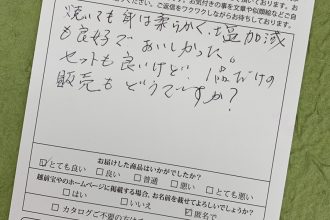 お気付きの事や似顔絵などご自
ください。ご返信をワクワクしながらお待ちしております。
焼いても身は柔らかく、塩加減
も良好でおいしかった。
セットも良いけど 1品だけの
販売もどうですか?
お届けした商品はいかがでしたか?
☑とても良い □良い □普通 □悪い □とても悪い
越前宝やのホームページに掲載する場合、お名前を載せてよろしいでしょうか?
□はい □いいえ ☑匿名で
□カタログご不要の方は